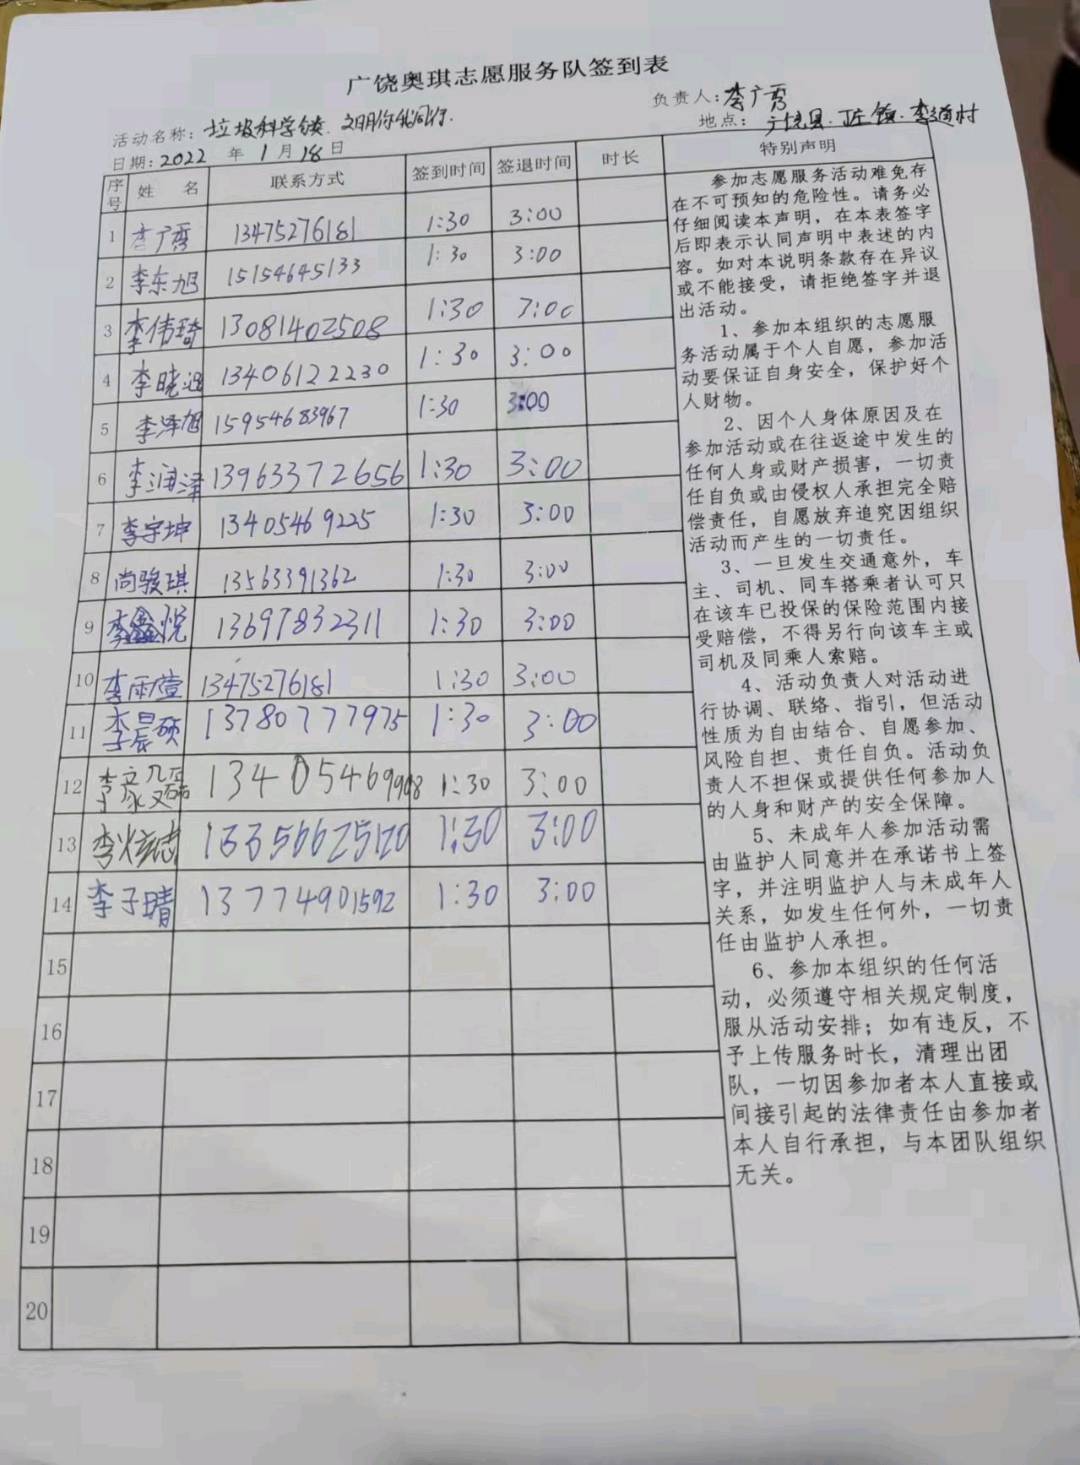 广饶奥琪志愿服务队签到表
负责人:李广秀
活动名称:垃圾科学 文明你我同行.
地点:广饶县. 镇.李道村
日期:2022 年 1 月 18 日
序号 姓 名 联系方式 签到时间 签退时间 时长 特别声明
1 李广秀 13475276181 1:30 3:00
2 李东旭 15154645133 1:30 3:00
3 李伟琦 13081402508 1:30 3:00
4 李晓 13406122230 1:30 3:00
5 李泽旭 15954683967 1:30 3:00
6 李润泽 13963372656 1:30 3:00
7 李宇坤 13405469225 1:30 3:00
8 尚骏琪 13563391362 1:30 3:00
9 李鑫悦 13697832311 1:30 3:00
10 李雨萱 13475276181 1:30 3:00
11 李晨硕 13780777975 1:30 3:00
12 李 1340546 1:30 3:00
13 李 志 13356625120 1:30 3:00
14 李子晴 13774901592 1:30 3:00
15
16
17
18
19
20
参加志愿服务活动难免存
在不可预知的危险性。请务必
仔细阅读本声明，在本表签字
后即表示认同声明中表述的内
容。如对本说明条款存在异议
或不能接受，请拒绝签字并退
出活动。
1、参加本组织的志愿服
务活动属于个人自愿，参加活
动要保证自身安全，保护好个
人财物。
2、因个人身体原因及在
参加活动或在往返途中发生的
任何人身或财产损害，一切责
任自负或由侵权人承担完全赔
偿责任，自愿放弃追究因组织
活动而产生的一切责任。
3、一旦发生交通意外，车
主、司机、同车搭乘者认可只
在该车已投保的保险范围内接
受赔偿，不得另行向该车主或
司机及同乘人索赔。
4、活动负责人对活动进
行协调、联络、指引，但活动
性质为自由结合、自愿参加、
风险自担、责任自负。活动负
责人不担保或提供任何参加人
的人身和财产的安全保障。
5、未成年人参加活动需
由监护人同意并在承诺书上签
字，并注明监护人与未成年人
关系，如发生任何外，一切责
任由监护人承担。
6、参加本组织的任何活
动，必须遵守相关规定制度，
服从活动安排；如有违反，不
予上传服务时长，清理出团
队，一切因参加者本人直接或
间接引起的法律责任由参加者
本人自行承担，与本团队组织
无关。